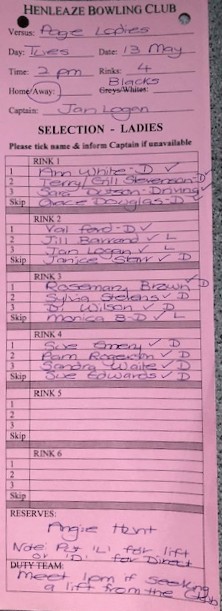 HENLEAZE BOWLING CLUB
Versus: Page Ladies
Day: Tues Date: 13 May
Time: 2 pm Rinks: 4
Home/Away: Blacks Greys/Whites:
Captain: Jan Logan
SELECTION - LADIES
Please tick name & inform Captain if unavailable
RINK 1
1 Ann White - D ✓
2 Terry/Gill Stevenson - D
3 Sara Dotson-Driving ✓
Skip Grace Douglas - D ✓
RINK 2
1 Val Ford - D ✓
2 Jill Barrand ✓ L
3 Jan Logan ✓ L
Skip Janice Starr ✓ D
RINK 3
1 Rosemary Brown ✓ D
2 Sylvia Stevens ✓ D
3 Di Wilson ✓ D
Skip Monica B-D ✓ L
RINK 4
1 Sue Emery ✓ D
2 Pam Rogerson ✓ D
3 Sandra Waite ✓ D
Skip Sue Edwards ✓ D
RINK 5
1
2
3
Skip
RINK 6
1
2
3
Skip
RESERVES:
Angie Hunt
Note: Put 'L' for lift
or 'D' for Direct
DUTY TEAM:
Meet 1pm if seeking
a lift from the Club